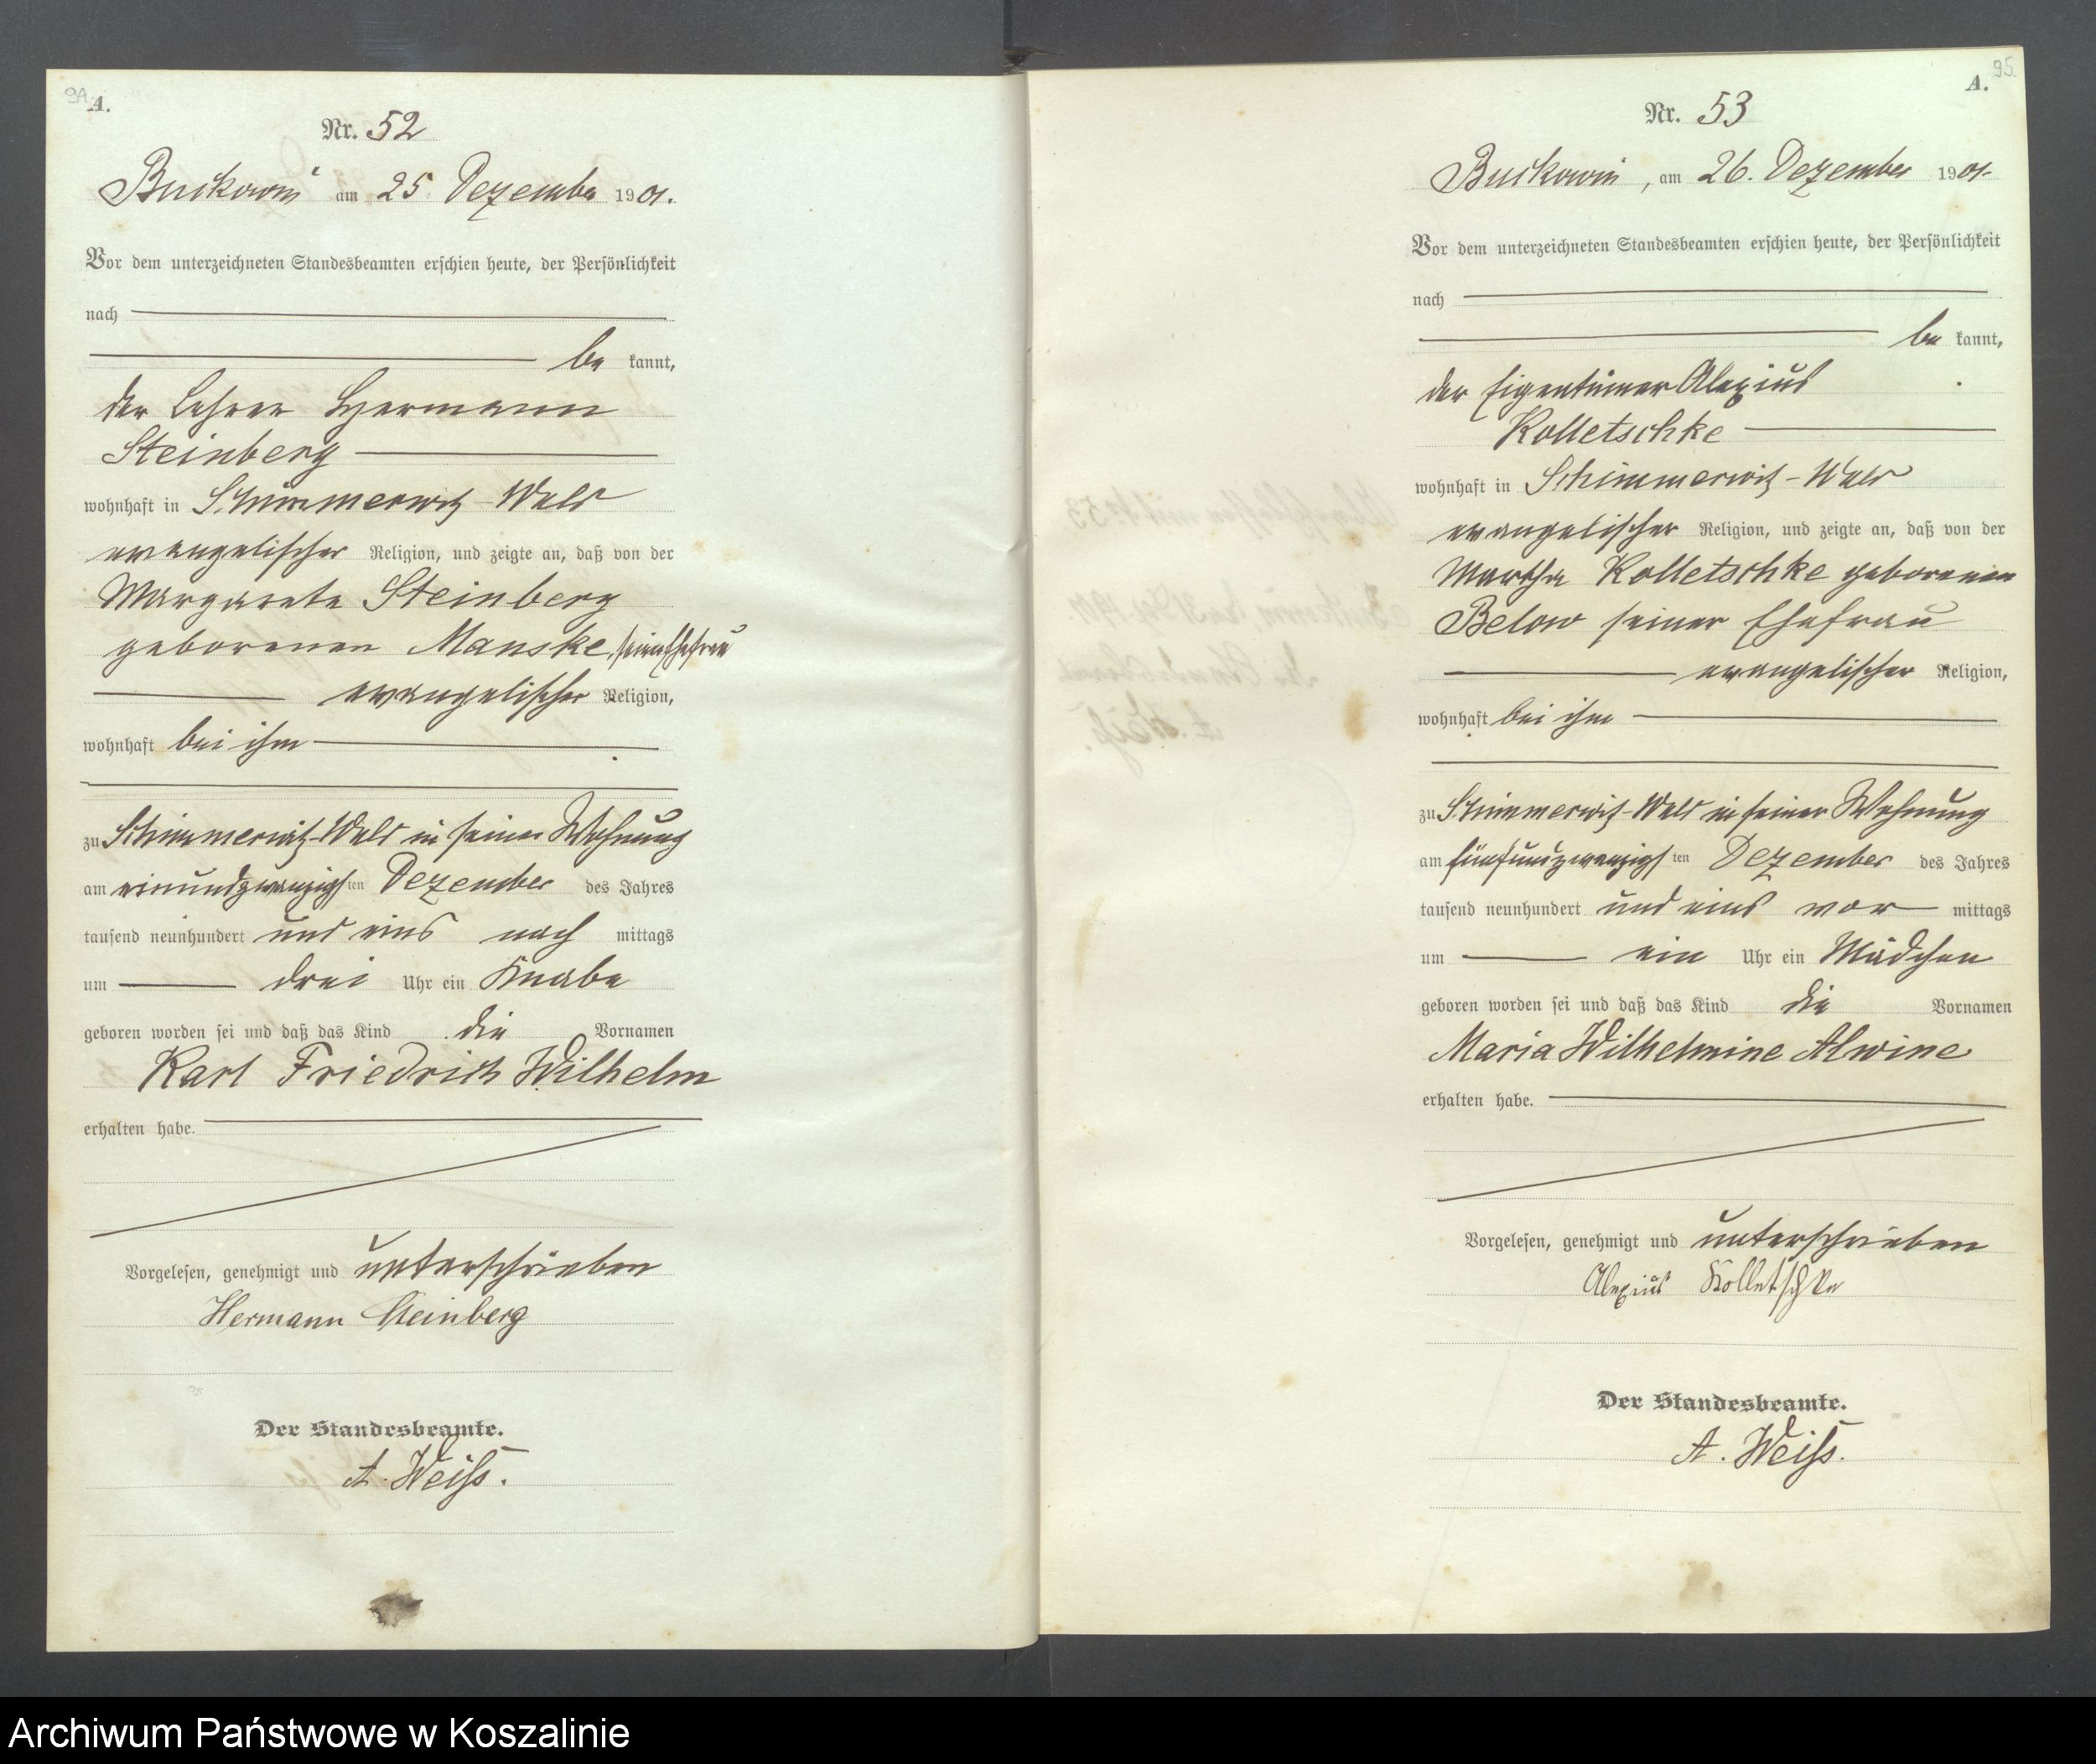 94
A.
Nr. 52
Buckowin am 25 Dezember 1901.
Vor dem unterzeichneten Standesbeamten erschien heute, der Persönlichkeit
nach
be kannt,
der Lehrer Hermann
Steinberg
wohnhaft in Schimmerwitz-Wald
evangelischer Religion, und zeigte an, daß von der
Margarete Steinberg
geborenen Manske, seiner Ehefrau
evangelischer Religion,
wohnhaft bei ihm
zu Schimmerwitz-Wald in seiner Wohnung
am einundzwanzigsten Dezember des Jahres
tausend neunhundert und eins nach mittags
um drei Uhr ein Knabe
geboren worden sei und daß das Kind die Vornamen
Karl Friedrich Wilhelm
erhalten habe.
Vorgelesen, genehmigt und unterschrieben
Hermann Steinberg
Der Standesbeamte.
A. Weiß.
95
A.
Nr. 53
Buckowin, am 26. Dezember 1901.
Vor dem unterzeichneten Standesbeamten erschien heute, der Persönlichkeit
nach
be kannt,
der Eigentümer Alexius
Kolletschke
wohnhaft in Schimmerwitz-Wald
evangelischer Religion, und zeigte an, daß von der
Martha Kolletschke geborenen
Below seiner Ehefrau
evangelischer Religion,
wohnhaft bei ihm
zu Schimmerwitz-Wald in seiner Wohnung
am fünfundzwanzigsten Dezember des Jahres
tausend neunhundert und eins vor mittags
um ein Uhr ein Mädchen
geboren worden sei und daß das Kind die Vornamen
Maria Wilhelmine Alwine
erhalten habe.
Vorgelesen, genehmigt und unterschrieben
Alexius Kolletschke
Der Standesbeamte.
A. Weiß.
Archiwum Państwowe w Koszalinie